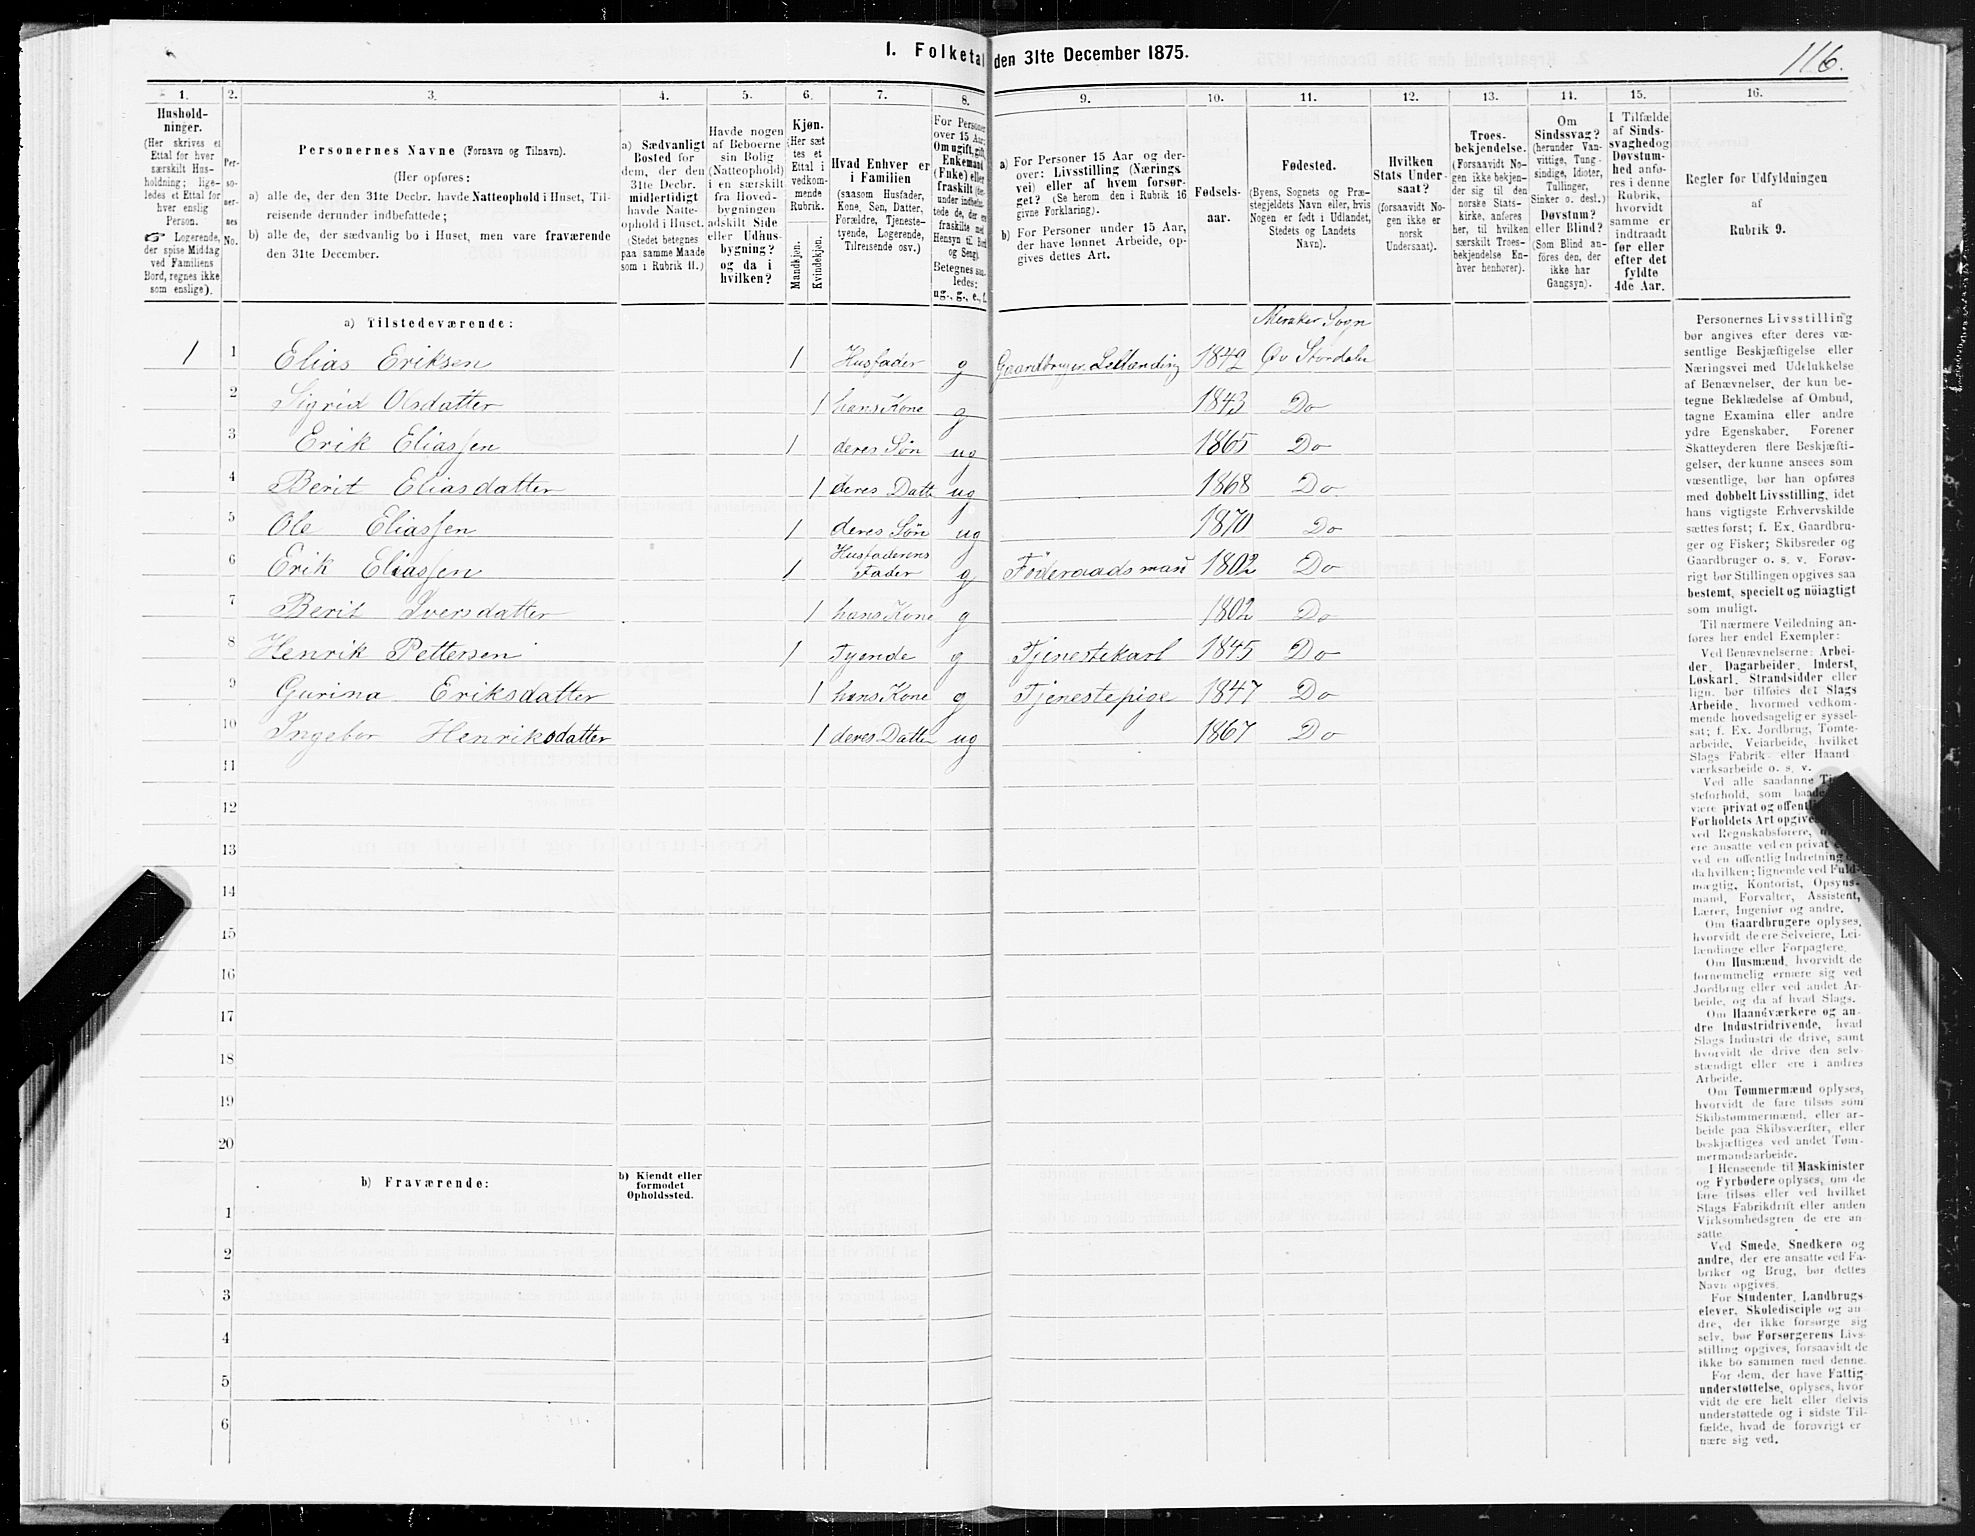 I. Folketal den 31te December 1875.
116.
1. 2. 3. 4. 5. 6. 7. 8. 9. 10. 11. 12. 13. 14. 15. 16.
Hushold-
ninger.
(Her skrives et
Ettal for hver
særskilt Hus-
holdning; lige-
ledes et Ettal for
hver enslig
Person.
☞ Logerende,
der spise Middag
ved Familiens
Bord, regnes ikke
som enslige).
Per-
so-
ner-
nes
No.
Personernes Navne (Fornavn og Tilnavn).
(Her opføres:
a) alle de, der den 31te Decbr. havde Natteophold i Huset, Til-
reisende derunder indbefattede;
b) alle de, der sædvanlig bo i Huset, men vare fraværende
den 31te December.
a) Sædvanligt
Bosted for
dem, der den
31te Decbr.
midlertidigt
havde Natte-
ophold i Huset.
(Stedet betegnes
paa samme Maade
som i Rubrik 11.)
Havde nogen
af Beboerne
sin Bolig
(Natteophold)
i en særskilt
fra Hoved-
bygningen
adskilt Side
eller Udhus-
bygning?
og da i
hvilken?
Kjøn.
(Her sæt
tes et
Ettal i
vedkom-
mende
Rubrik.
Mandkjøn.
Kvindekjøn.
Hvad Enhver er
i Familien
(saasom Husfader,
Kone, Søn, Datter,
Forældre, Tjeneste-
tyende, Logerende,
Tilreisende osv.)
For Personer
over 15 Aar:
Om ugift, gift,
Enkemand
(Enke) eller
fraskilt (der-
under indbefat-
tede de, der ere
fraskilte med
Hensyn til Bord
og Seng).
Betegnes saa-
ledes:
ug., g., e., f.
a) For Personer 15 Aar og der-
over: Livsstilling (Nærings-
vei) eller af hvem forsør-
get? (Se herom den i Rubrik 16
givne Forklaring).
b) For Personer under 15 Aar,
der have lønnet Arbeide, op-
gives dettes Art.
Fødsels-
aar.
Fødested.
(Byens, Sognets og Præ-
stegjeldets Navn eller, hvis
Nogen er født i Udlandet,
Stedets og Landets
Navn).
Hvilken
Stats Under-
saat?
(forsaavidt No-
gen ikke er
norsk
Undersaat).
Troes-
bekjendelse.
(Forsaavidt No-
gen ikke bekjen-
der sig til den
norske Stats-
kirke, anføres
her, til hvilken
særskilt Troes-
bekjendelse En-
hver henhører).
Om
Sindssvag?
(herunder Van-
vittige, Tung-
sindige, Idioter,
Tullinger,
Sinker o. desl.)
Døvstum?
eller Blind?
(Som Blind an-
føres den, der
ikke har
Gangsyn).
I Tilfælde
af Sinds-
svaghed og
Døvstum-
hed anfø-
res i denne
Rubrik,
hvorvidt
samme er
indtraadt
før eller
efter det
fyldte
4de Aar.
Regler for Udfyldningen
af
Rubrik 9.
a) Tilstedeværende:
Meraker Sogn
1 1 Elias Eriksen 1 Husfader g Gaardbruger Leilænding 1842 Øv Stordalen
2 Sigrid Olsdatter 1 hans Kone g 1843 Do
3 Erik Eliassen 1 deres Søn ug 1865 Do
4 Berit Eliasdatter 1 deres Datt ug 1868 Do
5 Ole Eliassen 1 deres Søn ug 1870 Do
Husfaderens
6 Erik Eliassen 1 Fader g Föderaadsman 1802 Do
7 Berit Iversdatter 1 hans Kone g 1802 Do
8 Henrik Pettersen 1 Tyende g Tjenestekarl 1845 Do
9 Gurina Eriksdatter 1 hans Kone g Tjenestepige 1847 Do
10 Ingebor Henriksdatter 1 deres Datter ug 1867 Do
11
12
13
14
15
16
17
18
19
20
b) Fraværende:
b) Kjendt eller
formodet
Opholdssted.
1
2
3
4
5
6
Personernes Livsstilling
bør angives efter deres væ-
sentlige Beskjæftigelse eller
Næringsvei med Udelukkelse
af Benævnelser, der kun be-
tegne Beklædelse af Ombud,
tagne Examina eller andre
ydre Egenskaber. Forener
Skatteyderen flere Beskjæfti-
gelser, der kunne ansees som
væsentlige, bør han opføres
med dobbelt Livsstilling, idet
hans vigtigste Erhvervskilde
sættes først; f. Ex. Gaardbru-
ger og Fisker; Skibsreder og
Gaardbruger o. s. v. Forøv-
rigt bør Stillingen opgives saa
bestemt, specielt og nöiagtigt
som muligt.
Til nærmere Veiledning an-
føres her endel Exempler:
Ved Benævnelserne: Arbei-
der, Dagarbeider, Inderst,
Løskarl, Strandsidder eller
lign. bør tilføies det Slags
Arbeide, hvormed vedkom-
mende hovedsagelig er syssel-
sat; f. Ex. Jordbrug, Tomte-
arbeide, Veiarbeide, hvilket
Slags Fabrik- eller Haand
værksarbeide o. s. v.
Ved alle saadanne
steforhold, som
være privat og
Forholdets Art opgives
ved Regnskabsførere,
ere ansatte ved en privat
ved en offentlig Indretning
da hvilken; lignende ved Fuld-
mægtig, Kontorist, Opsyns-
mand, Forvalter, Assistent,
Lærer, Ingeniør og andre.
Om Gaardbrugere oplyses,
hvorvidt de ere Selveiere, Lei-
lændinge eller Forpagtere.
Om Husmænd, hvorvidt de
fornemmelig ernære sig ved
Jordbrug eller ved andet Ar-
beide, og da af hvad Slags.
Om Haandværkere og an-
dre Industridrivende, hvad
Slags Industri de drive, samt
hvorvidt de drive den selv-
stændigt eller ere i andres
Arbeide.
Om Tømmermænd oplyses,
hvorvidt de fare tilsøs som
Skibstømmermænd, eller ar-
beide paa Skibsværfter, eller
beskjæftiges ved andet Tøm-
mermandsarbeide.
I Henseende til Maskinister
og Fyrbødere oplyses, om de
fare tilsøs eller ved hvilket
Slags Fabrikdrift eller anden
Virksomhedsgren de ere an-
satte.
Ved Smede, Snedkere og
andre, der ere ansatte ved Fa-
briker og Brug, bør dettes
Navn opgives.
For Studenter, Landbrugs-
elever, Skoledisciple og an-
dre, der ikke forsørge sig
selv, bør Forsørgerens Livs-
stilling opgives, forsaavidt de
ikke bo sammen med denne.
For dem, der have Fattig-
understøttelse, oplyses, hvor-
vidt de ere helt eller delvis
understøttede og i sidste Til-
fælde, hvad de forøvrigt er-
nære sig ved.